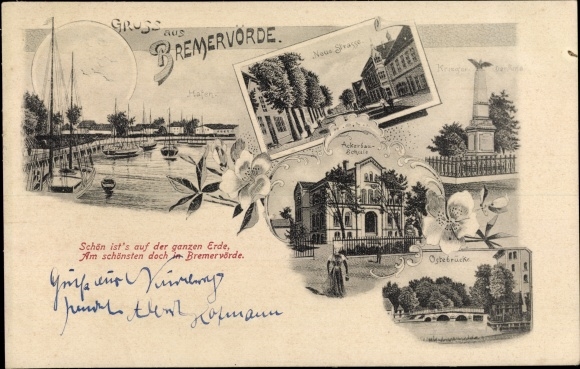 GRUSS AUS
BREMERVÖRDE.
Hafen.
Neue Strasse
Ackerbau-
Schule
Ostebrücke.
Schön ist's auf der ganzen Erde,
Am schönsten doch in Bremervörde.
sendet Albert
Hofmann